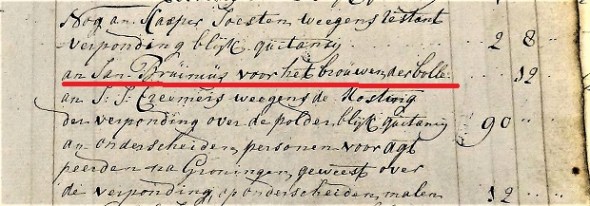 Nog an Kasper Joesten, weegens restant
verponding blijk quitancij 2 8
an Jan Bruinius voor het brouwen der bolle 12
an J: J: weegens de kosting
der verponding over de polder, blijk quitancij 90
an onderscheiden personen voor agt
peerden na Groningen, geweest over
de verponding op onderscheiden malen 12